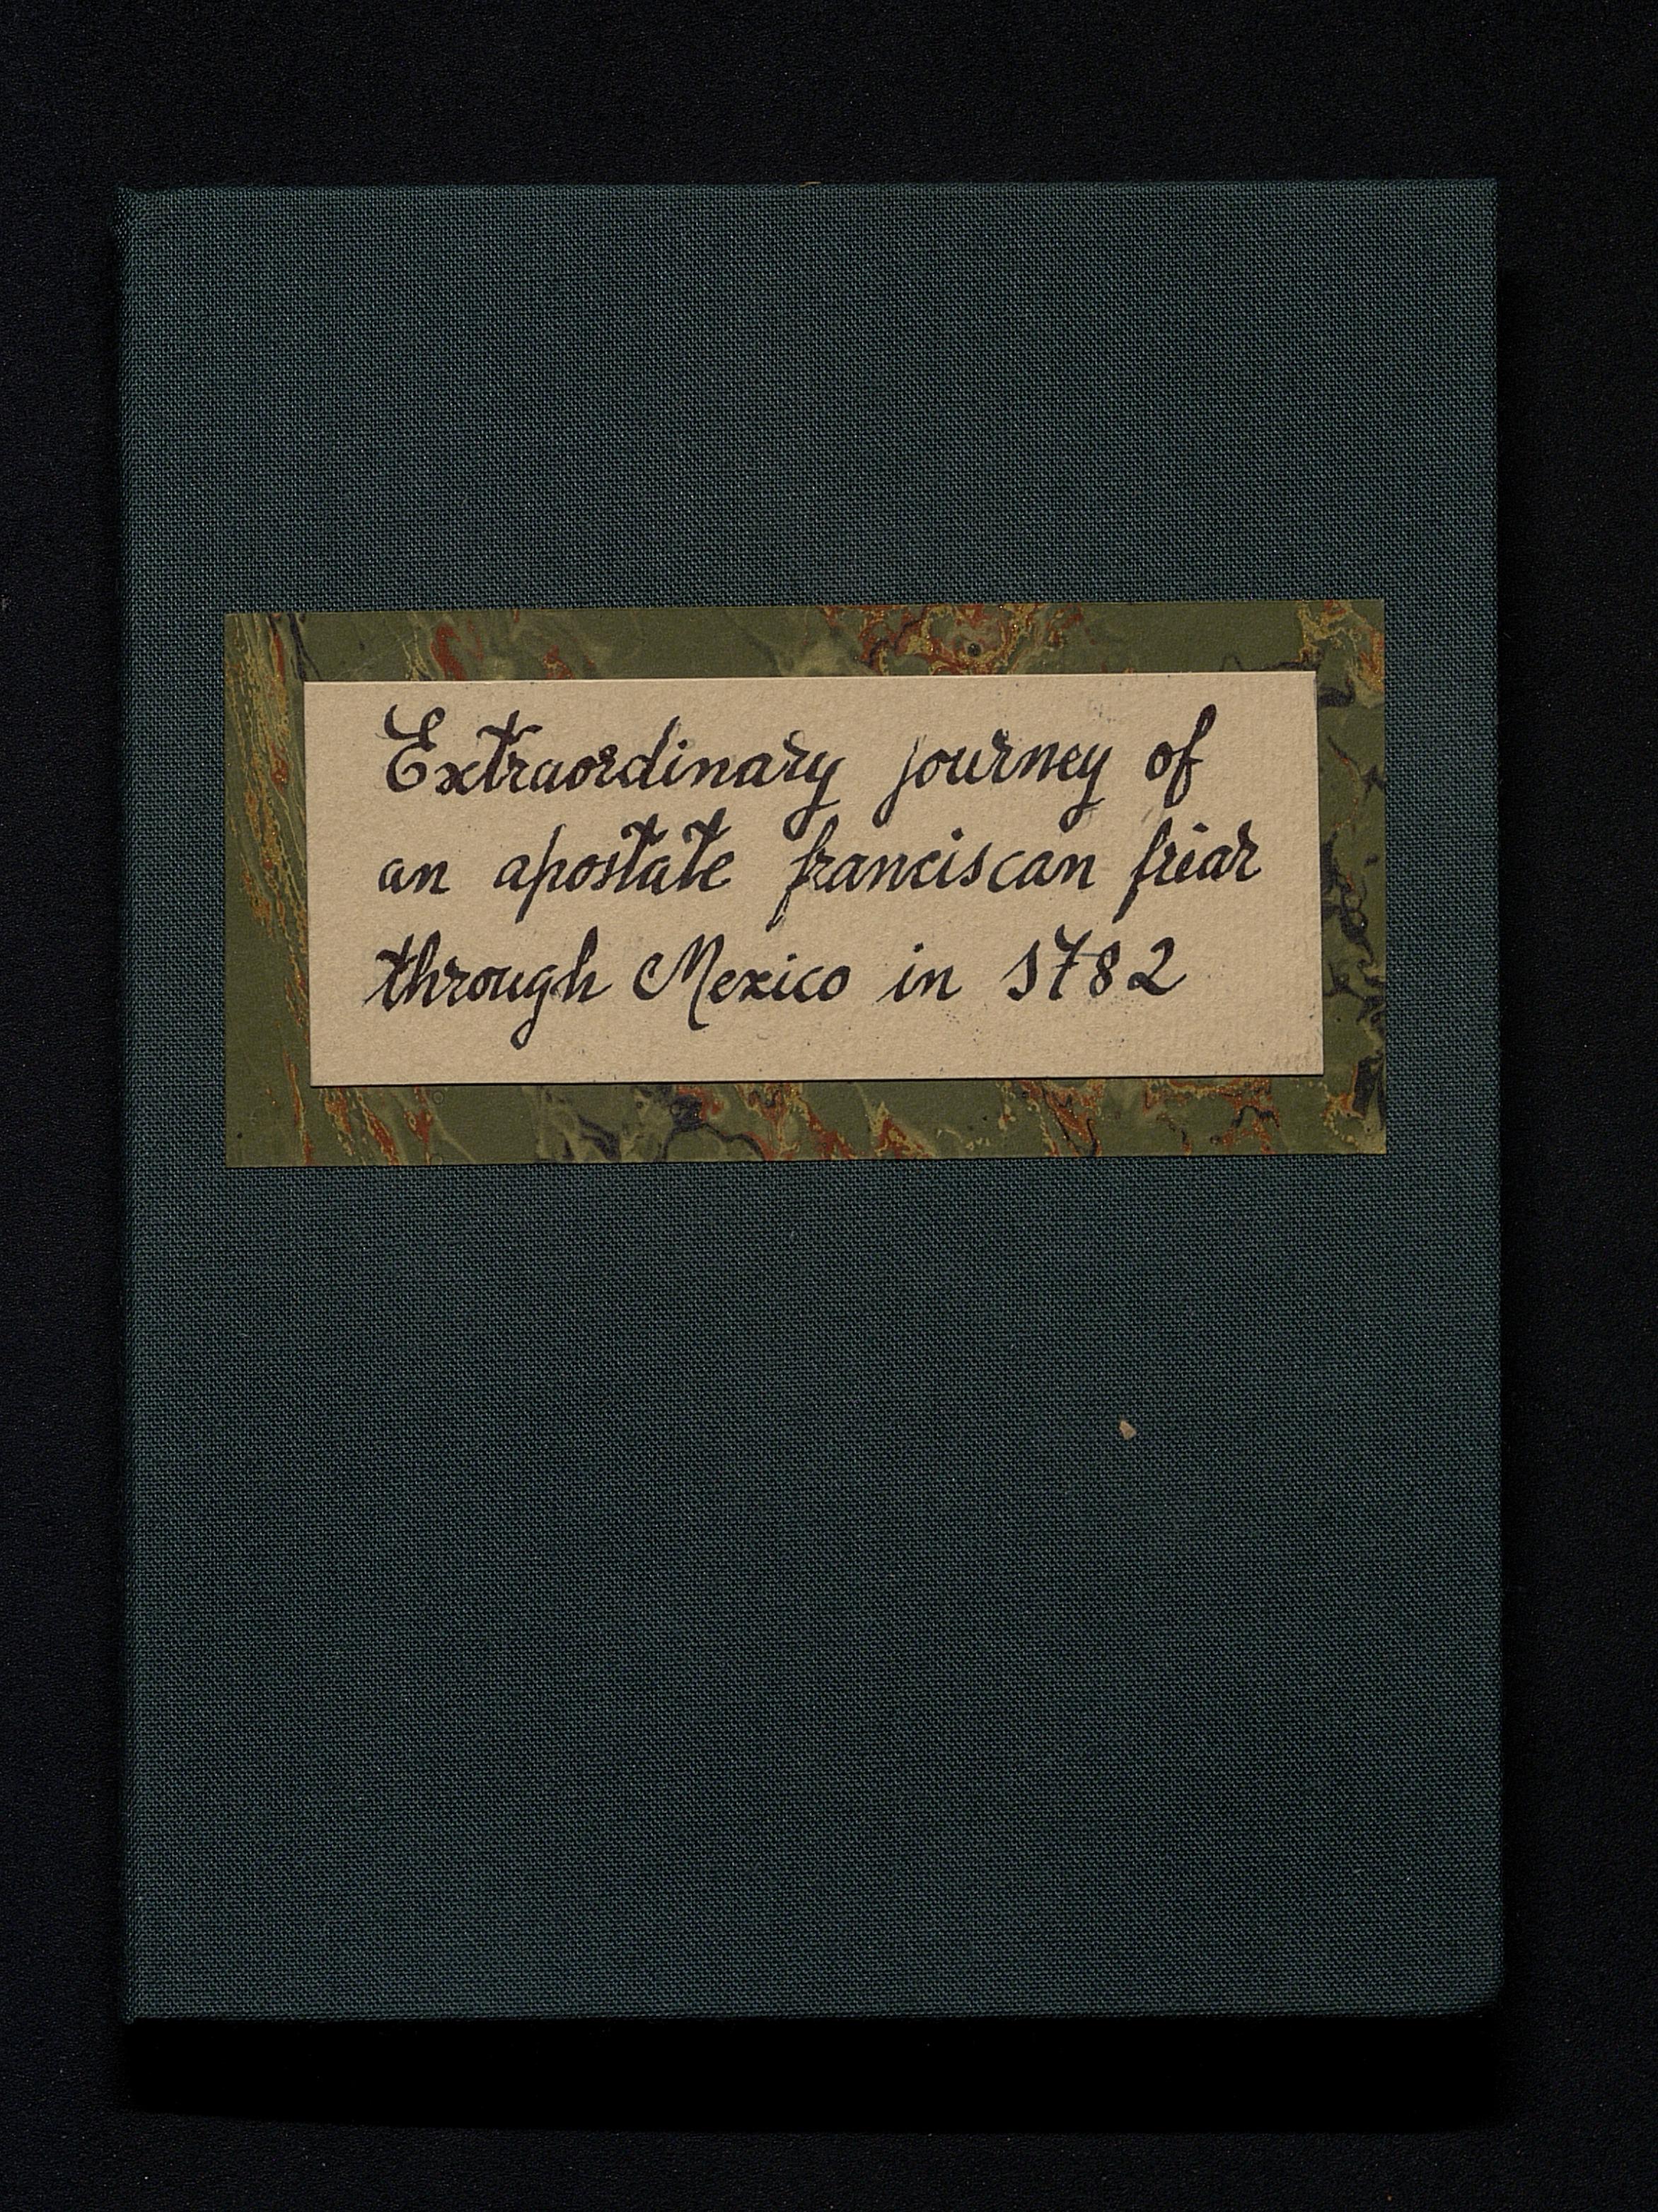 Extraordinary journey of
an apostate franciscan friar
through Mexico in 1782